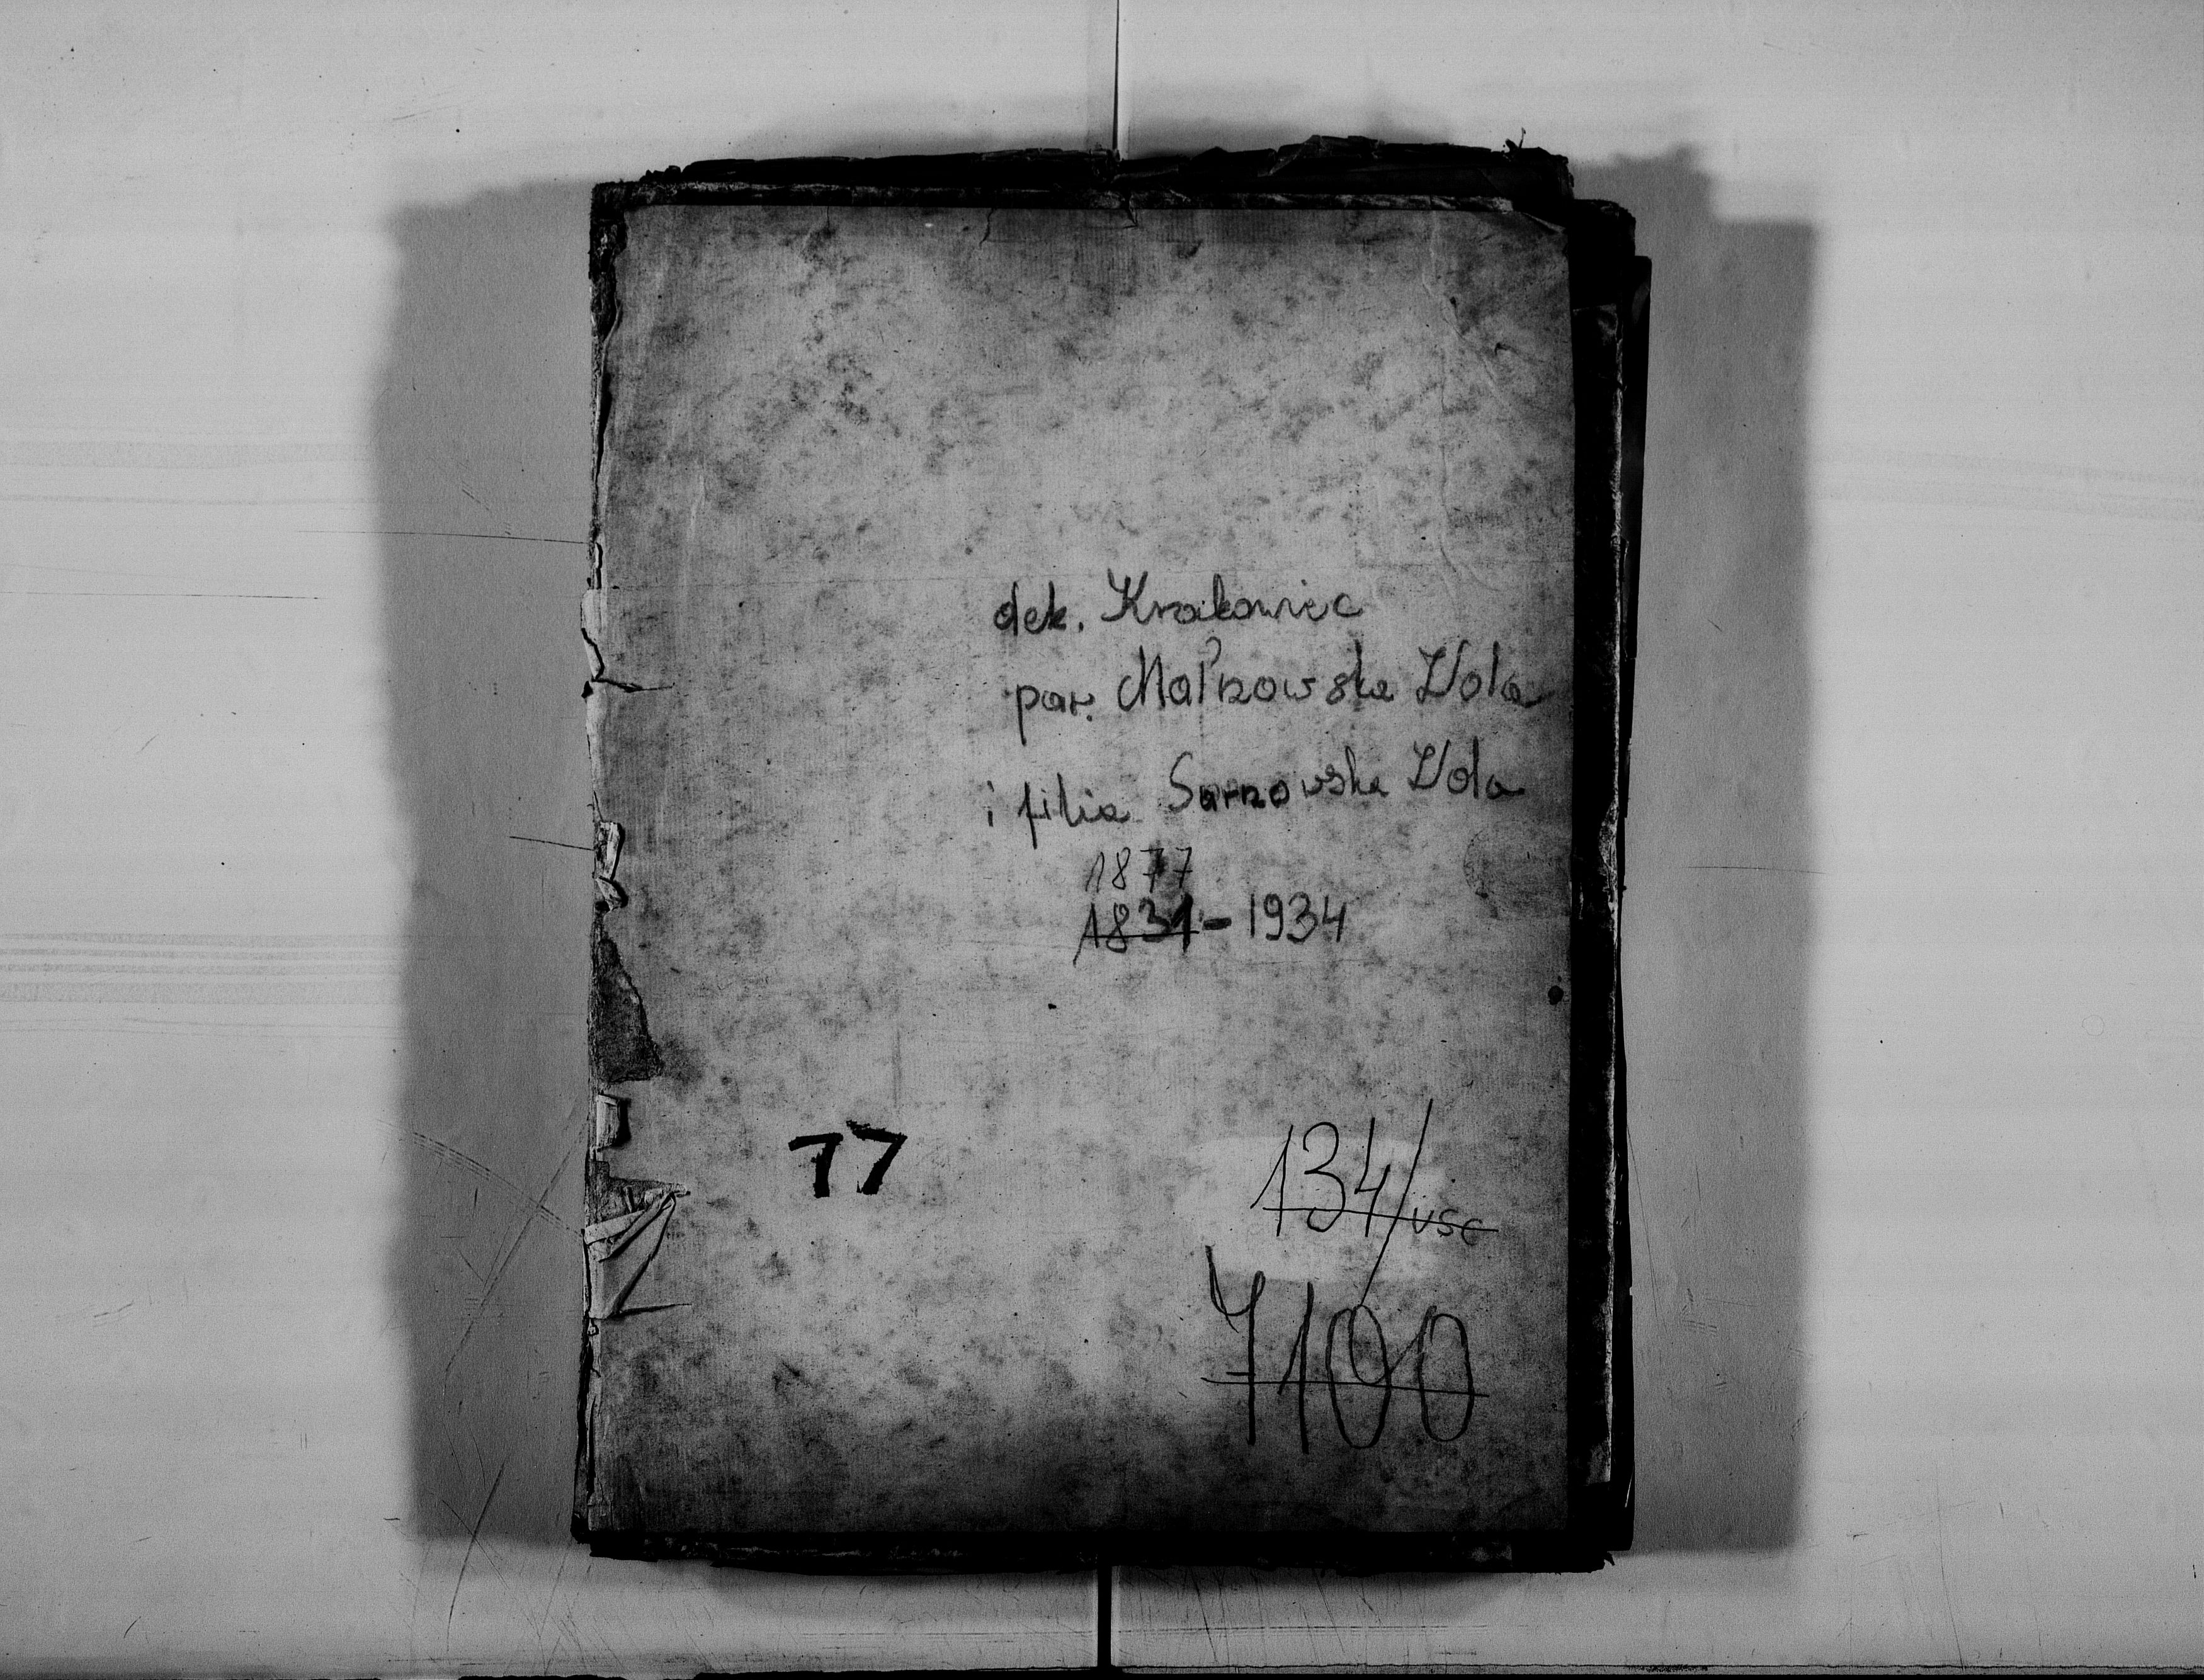 dek. Krakowiec
par. Małnowska Wola
i filia Sarnowska Wola
1877
1831-1934
77
134/USC
7100